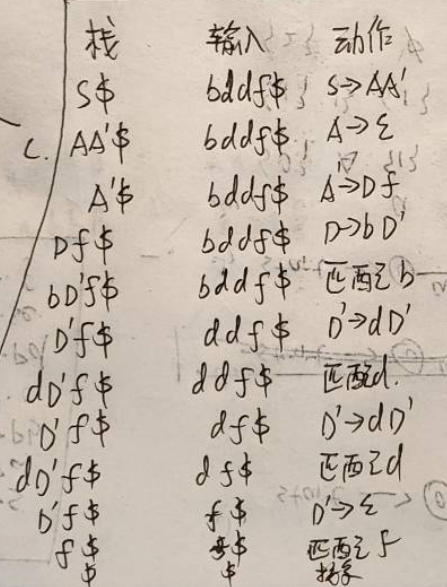 栈 输入 动作
S$ bddf$ S→AA'
C. AA'$ bddf$ A→ε
A'$ bddf$ A'→Df
Df$ bddf$ D→bD'
bD'f$ bddf$ 匹配b
D'f$ ddf$ D'→dD'
dD'f$ ddf$ 匹配d.
D'f$ df$ D'→dD'
dD'f$ df$ 匹配d
D'f$ f$ D'→ε
f$ $ 匹配f
$